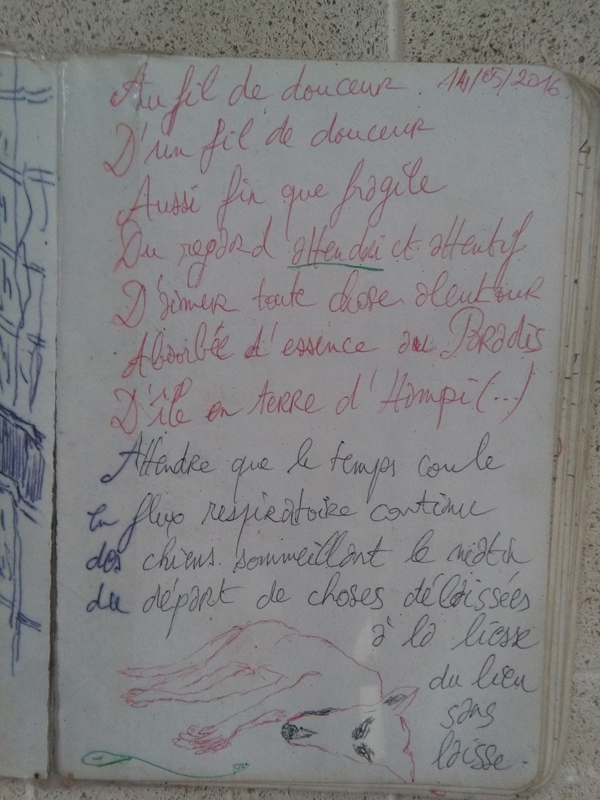 Au fil de douceur 14/05/2016
D'un fil de douceur
Aussi fin que fragile
Du regard attendri et attentif
D'aimer toute chose alentour
Absorbée d'essence au Paradis
D'île en terre d'Hampi (...)
Attendre que le temps coule
en flux respiratoire continu
des chiens sommeillant le matin
du départ de choses délaissées
à la liesse
du lieu
sans
laisse.